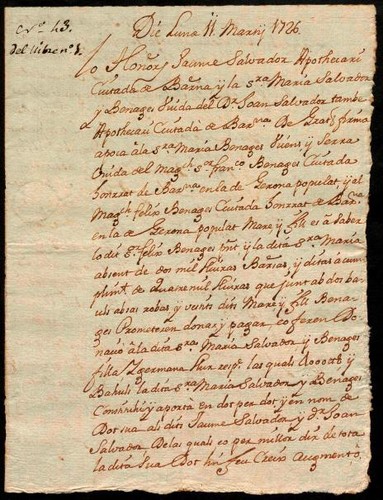 Cᵛᵒ 43.
del llibre nº 1.
Die Lunæ 11 Martij 1726.
Lo Honorᵉ Jaume Salvador Apothecari
Ciutadà de Barna y la sʳᵃ Maria Salvador
y Benages Viuda del Dʳ Joan Salvador també
Apothecari Ciutadà de Barⁿᵃ De Grat, firma
apoca à la sʳᵃ Maria Benages y Serra
Viuda del Magᶜʰ sᵒʳ franᶜᵒ Benages Ciutadà
honrrat de Barⁿᵃ en la de Gerona populat, y al
Magᶜʰ felix Benages Ciutadà honrrat de Barⁿᵃ
en la de Gerona populat Mare y fill es à saber
lo dit sʳ felix Benages y la dita sʳᵃ Maria
absent de dos mil lliuras Barⁿᵃˢ, y ditas à cum
de lliuras que junt ab dos bau
buls ab sas robas y vestits dits Mare y fill Bena
ges Prometeren donar y pagar è feren Do
nació à la dita sʳᵃ Maria Salvador y Benages
filla y germana llur respᵉ. las quals 2000 ll y
Bahuls la dita sʳᵃ Maria Salvador y Benages
Constituhi y aportà en dot per dot y en nom de
Dot sua als dits Jaume Salvador y dʳ Joan
Salvador De las quals es per millor dir de tota
la dita sua Dot hin feu Creix Augmento,